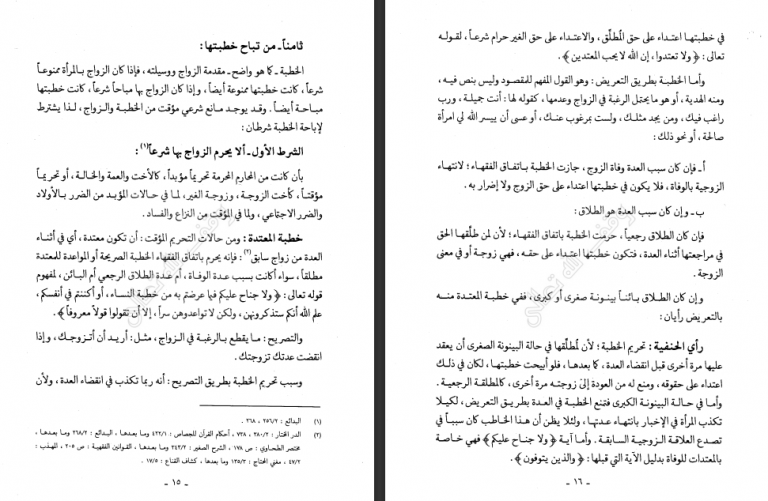 ثامناً ـ من تباح خطبتها :
الخطبة ـ كما هو واضح ـ مقدمة الزواج ووسيلته ، فإذا كان الزواج بالمرأة ممنوعاً
شرعاً ، كانت خطبتها ممنوعة أيضاً ، وإذا كان الزواج بها مباحاً شرعاً ، كانت خطبتها
مباحة أيضاً . وقد يوجد مانع شرعي مؤقت من الخطبة والزواج ، لذا يشترط
لإباحة الخطبة شرطان :
الشرط الأول ـ ألا يحرم الزواج بها شرعاً(١) :
بأن كانت من المحارم المحرمة تحريماً مؤبداً ، كالأخت والعمة والخالة ، أو تحريماً
مؤقتاً ، كأخت الزوجة ، وزوجة الغير ، لما في حالات المؤبد من الضرر بالأولاد
والضرر الاجتماعي ، ولما في المؤقت من النزاع والفساد .
خطبة المعتدة : ومن حالات التحريم المؤقت : أن تكون معتدة ، أي في أثناء
العدة من زواج سابق(٢) : فإنه يحرم باتفاق الفقهاء الخطبة الصريحة أو المواعدة للمعتدة
مطلقاً ، سواء أكانت بسبب عدة الوفاة ، أم عدة الطلاق الرجعي أم البائن ، لمفهوم
قوله تعالى : ﴿ ولا جناح عليكم فيما عرضتم به من خطبة النساء ، أو أكننتم في أنفسكم ،
علم الله أنكم ستذكرونهن ، ولكن لا تواعدوهن سراً ، إلا أن تقولوا قولاً معروفاً ﴾ .
والتصريح : ما يقطع بالرغبة في الزواج ، مثل : أريد أن أتزوجك ، وإذا
انقضت عدتك تزوجتك .
وسبب تحريم الخطبة بطريق التصريح : أنه ربما تكذب في انقضاء العدة ، ولأن
(١) البدائع : ٢٥٦/٢ ، ٢٦٨ .
(٢) الدر المختار : ٣٨٠/٢ ، ٧٣٨ ، أحكام القرآن للجصاص : ٤٢٢/١ وما بعدها ، البدائع : ٢٦٨/٢ وما بعدها ،
مختصر الطحاوي : ص ١٧٨ ، الشرح الصغير : ٣٤٣/٢ وما بعدها ، القوانين الفقهية : ص ٢٠٥ ، المهذب :
٤٧/٢ ، مغني المحتاج : ١٣٥/٣ وما بعدها ، كشاف القناع : ١٧/٥ .
ـ ١٥ ـ
في خطبتها اعتداء على حق المُطلِّق ، والاعتداء على حق الغير حرام شرعاً ، لقوله
تعالى : ﴿ ولا تعتدوا ، إن الله لا يحب المعتدين ﴾ .
وأما الخطبة بطريق التعريض : وهو القول المفهم للمقصود وليس بنص فيه ،
ومنه الهدية ، أو هو ما يحتمل الرغبة في الزواج وعدمها ، كقوله لها : أنت جميلة ، ورب
راغب فيك ، ومن يجد مثلك ، ولست بمرغوب عنك ، أو عسى أن ييسر الله لي امرأة
صالحة ، أو نحو ذلك :
أ ـ فإن كان سبب العدة وفاة الزوج ، جازت الخطبة باتفاق الفقهاء ؛ لانتهاء
الزوجية بالوفاة ، فلا يكون في خطبتها اعتداء على حق الزوج ولا إضرار به .
ب ـ وإن كان سبب العدة هو الطلاق :
فإن كان الطلاق رجعياً ، حرمت الخطبة باتفاق الفقهاء ؛ لأن لمن طلّقها الحق
في مراجعتها أثناء العدة ، فتكون خطبتها اعتداء على حقه ، فهي زوجة أو في معنى
الزوجة .
وإن كان الطلاق بائناً بينونة صغرى أو كبرى ، ففي خطبة المعتدة منه
بالتعريض رأيان :
رأي الحنفية : تحريم الخطبة ؛ لأن لمُطلِّقها في حالة البينونة الصغرى أن يعقد
عليها مرة أخرى قبل انقضاء العدة ، كما بعدها ، فلو أبيحت خطبتها ، لكان في ذلك
اعتداء على حقوقه ، ومنع له من العودة إلى زوجته مرة أخرى ، كالمطلقة الرجعية .
وأما في حالة البينونة الكبرى فتمنع الخطبة في العدة بطريق التعريض ، لكيلا
تكذب المرأة في الإخبار بانتهاء عدتها ، ولئلا يظن أن هذا الخاطب كان سبباً في
تصدع العلاقة الزوجية السابقة . وأما آية ﴿ ولا جناح عليكم ﴾ فهي خاصة
بالمعتدات للوفاة بدليل الآية التي قبلها : ﴿ والذين يتوفون ﴾ .
ـ ١٦ ـ